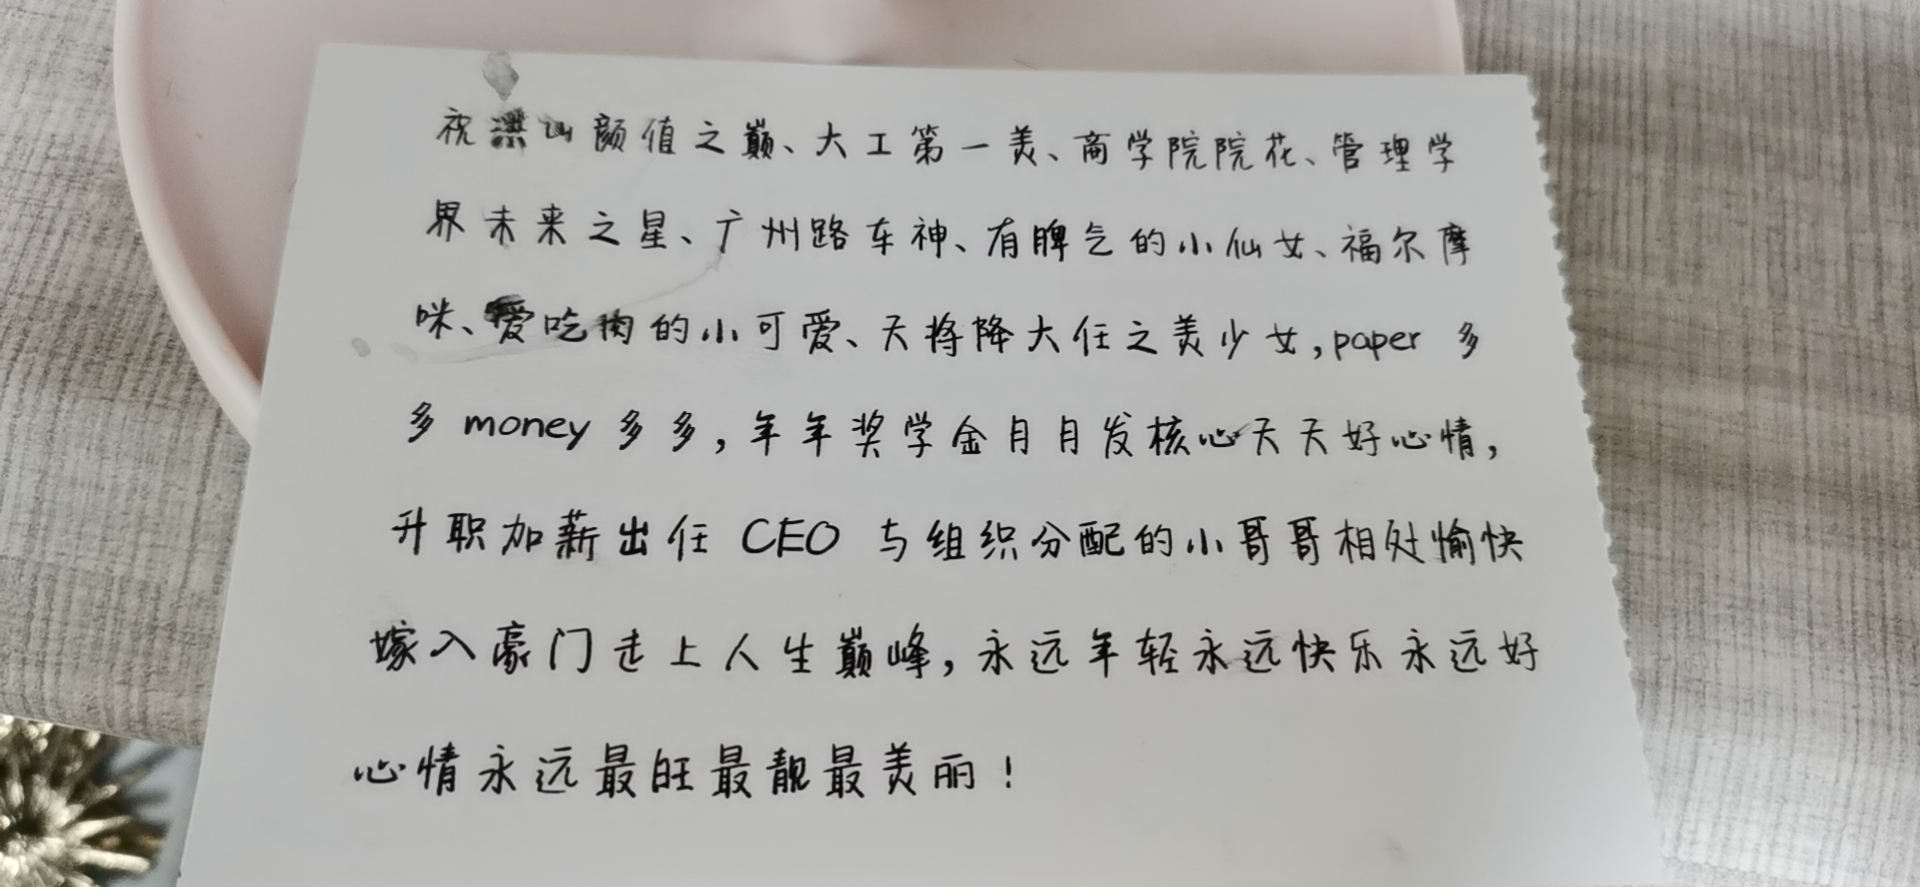 祝梁山颜值之巅、大工第一美、商学院院花、管理学
界未来之星、广州路车神、有脾气的小仙女、福尔摩
咪、爱吃肉的小可爱、天将降大任之美少女,paper 多
多 money 多多,年年奖学金月月发核心天天好心情,
升职加薪出任 CEO 与组织分配的小哥哥相处愉快
嫁入豪门走上人生巅峰,永远年轻永远快乐永远好
心情永远最旺最靓最美丽!